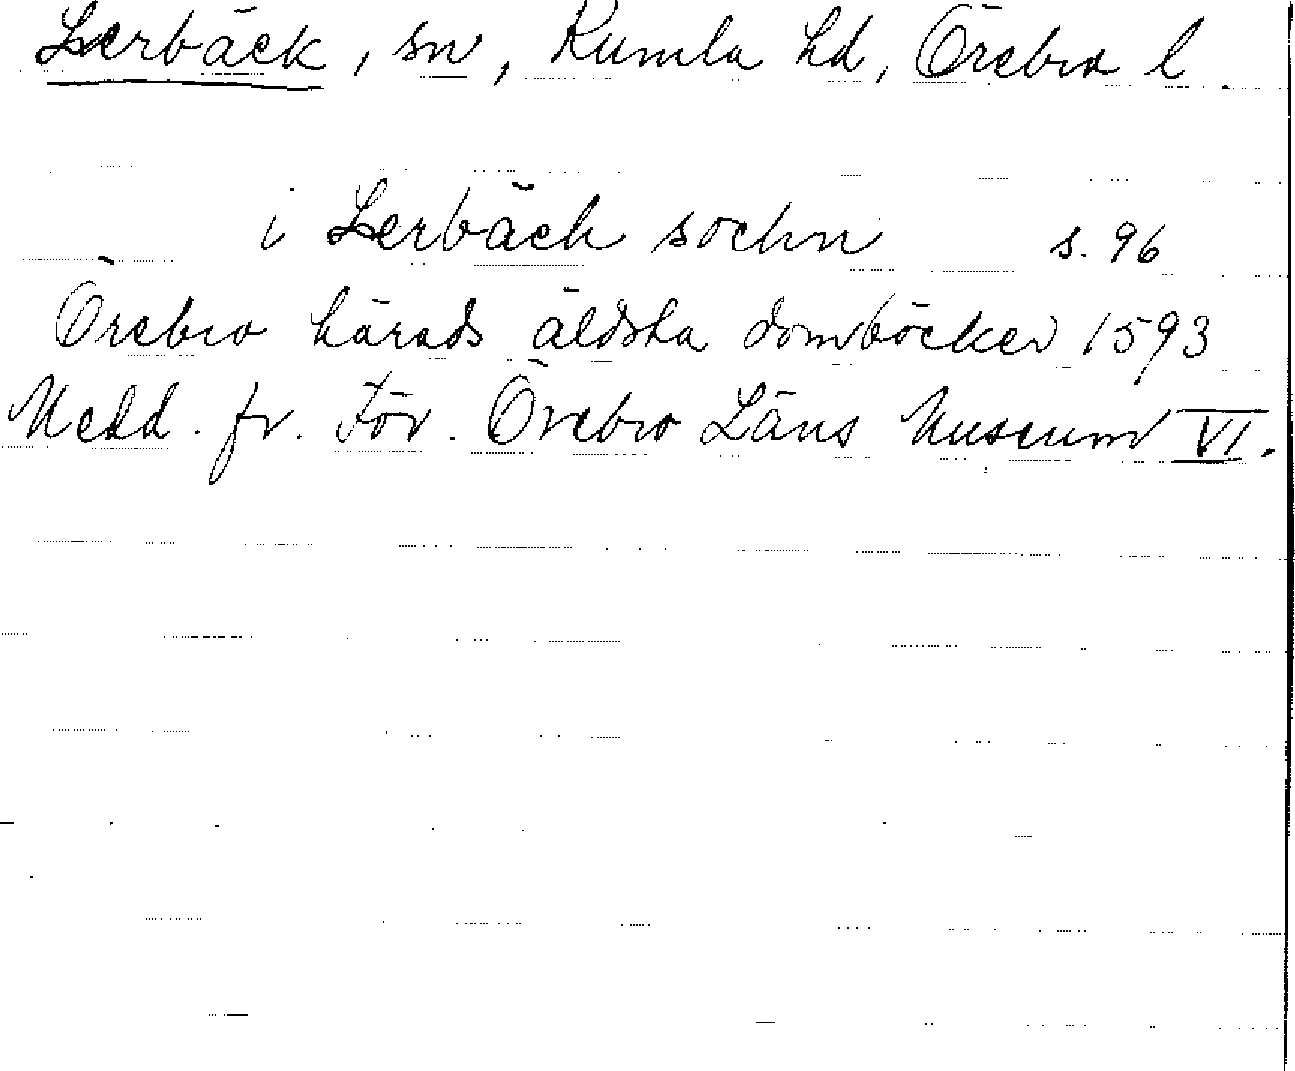 Lerbäck, sn, Kumla hd, Örebro l.
i Lerbäch sochn s. 96
Örebro härads äldsta domböcker 1593
Medd. fr. För. Örebro Läns Museum VI.